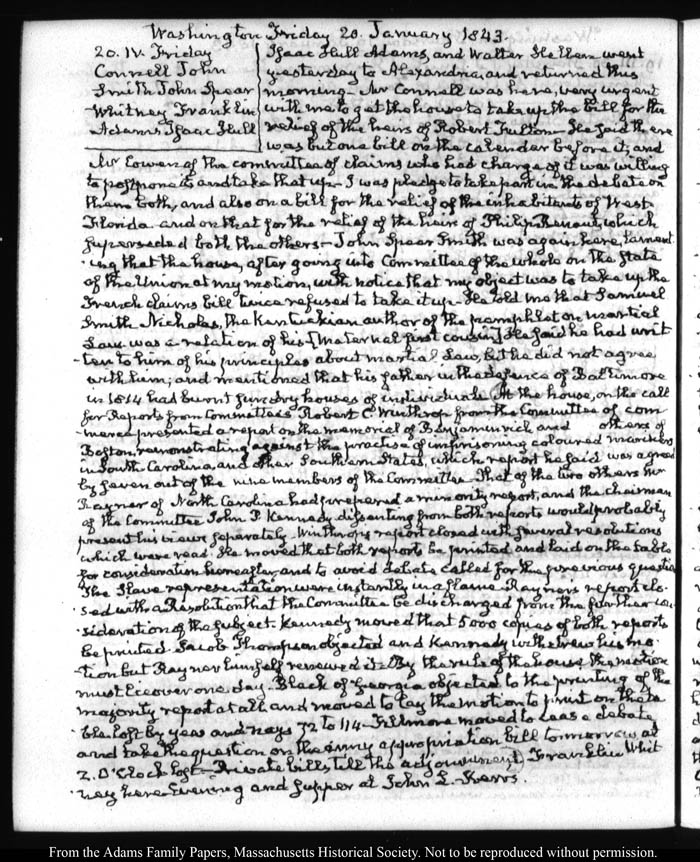 Washington Friday 20. January 1843.
20. IV. Friday
Connell John
Smith John Spear
Whitney Franklin
Adams Isaac Hull
Isaac Hull Adams, and Walter Hellen went
yesterday to Alexandria, and returned this
morning. Mr Connell was here, very urgent
with me to get the house to take up the bill for the
relief of the heirs of Robert Fulton. He said there
was but one bill on the calendar before it, and
Mr Cowen of the committee of claims who had charge of it was willing
to postpone it and take that up. I was pledge to take part in the debate on
them both, and also on a bill for the relief of the inhabitants of West
Florida and on that for the relief of the heirs of Philip Renout, which
superseded both the others. John Spear Smith was again here, lament
ing that the house, after going into Committee of the whole on the State
of the Union at my motion, with notice that my object was to take up the
French claims bill twice refused to take it up. He told me that Samuel
Smith Nicholas, the Kentuckian author of the pamphlet on martial
Law was a relation of his [maternal first cousin] He said he had writ
ten to him of his principles about martial Law, but he did not agree
with him; and mentioned that his father in the defence of Baltimore
in 1814 had burnt sundry houses of individuals. At the house, on the call
for Reports from Committees Robert C. Winthrop from the Committee of com
merce presented a report on the memorial of Benjamin rich and others of
Boston, remonstrating against the practise of imprisoning coloured mariners
in South Carolina, and other Southern States, which report he said was agreed
by seven out of the nine members of the Committee. That of the two others Mr
Rayner of North Carolina had prepared a minority report, and the chairman
of the Committee John P. Kennedy dissenting from both reports would probably
present his views separately. Winthrop's report closed with several resolutions
which were read. He moved that both reports be printed and laid on the table
for consideration hereafter, and to avoid debate called for the previous question
The Slave representation were instantly in a flame. Rayner's report clo
sed with a Resolution that the Committee be discharged from the further con
sideration of the subject. Kennedy moved that 5000 copies of both reports
be printed. Jacob Thompson objected and Kennedy withdrew his mo
tion but Rayner himself renewed it. By the rule of the house the motion
must lie over one day. Black of Georgia objected to the printing of the
majority report at all and moved to lay the motion to print on the ta
ble lost by yeas and nays 72 to 114. Fillmore moved to cease debate
and take the question on the army appropriation bill to morrow at
2. O'Clock lost. Private bills, till the adjournment. Franklin Whit
ney here. Evening and supper at John L. Kerrs.
From the Adams Family Papers, Massachusetts Historical Society. Not to be reproduced without permission.